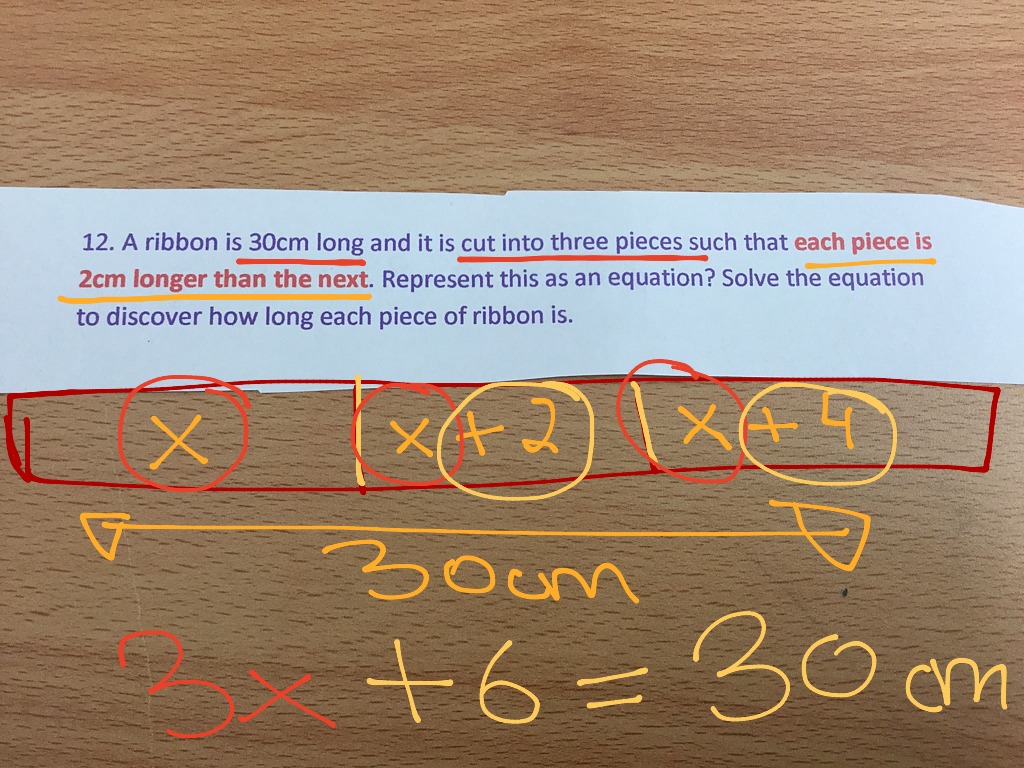 12. A ribbon is 30cm long and it is cut into three pieces such that each piece is
2cm longer than the next. Represent this as an equation? Solve the equation
to discover how long each piece of ribbon is.
x x + 2 x + 4
30cm
3x + 6 = 30cm